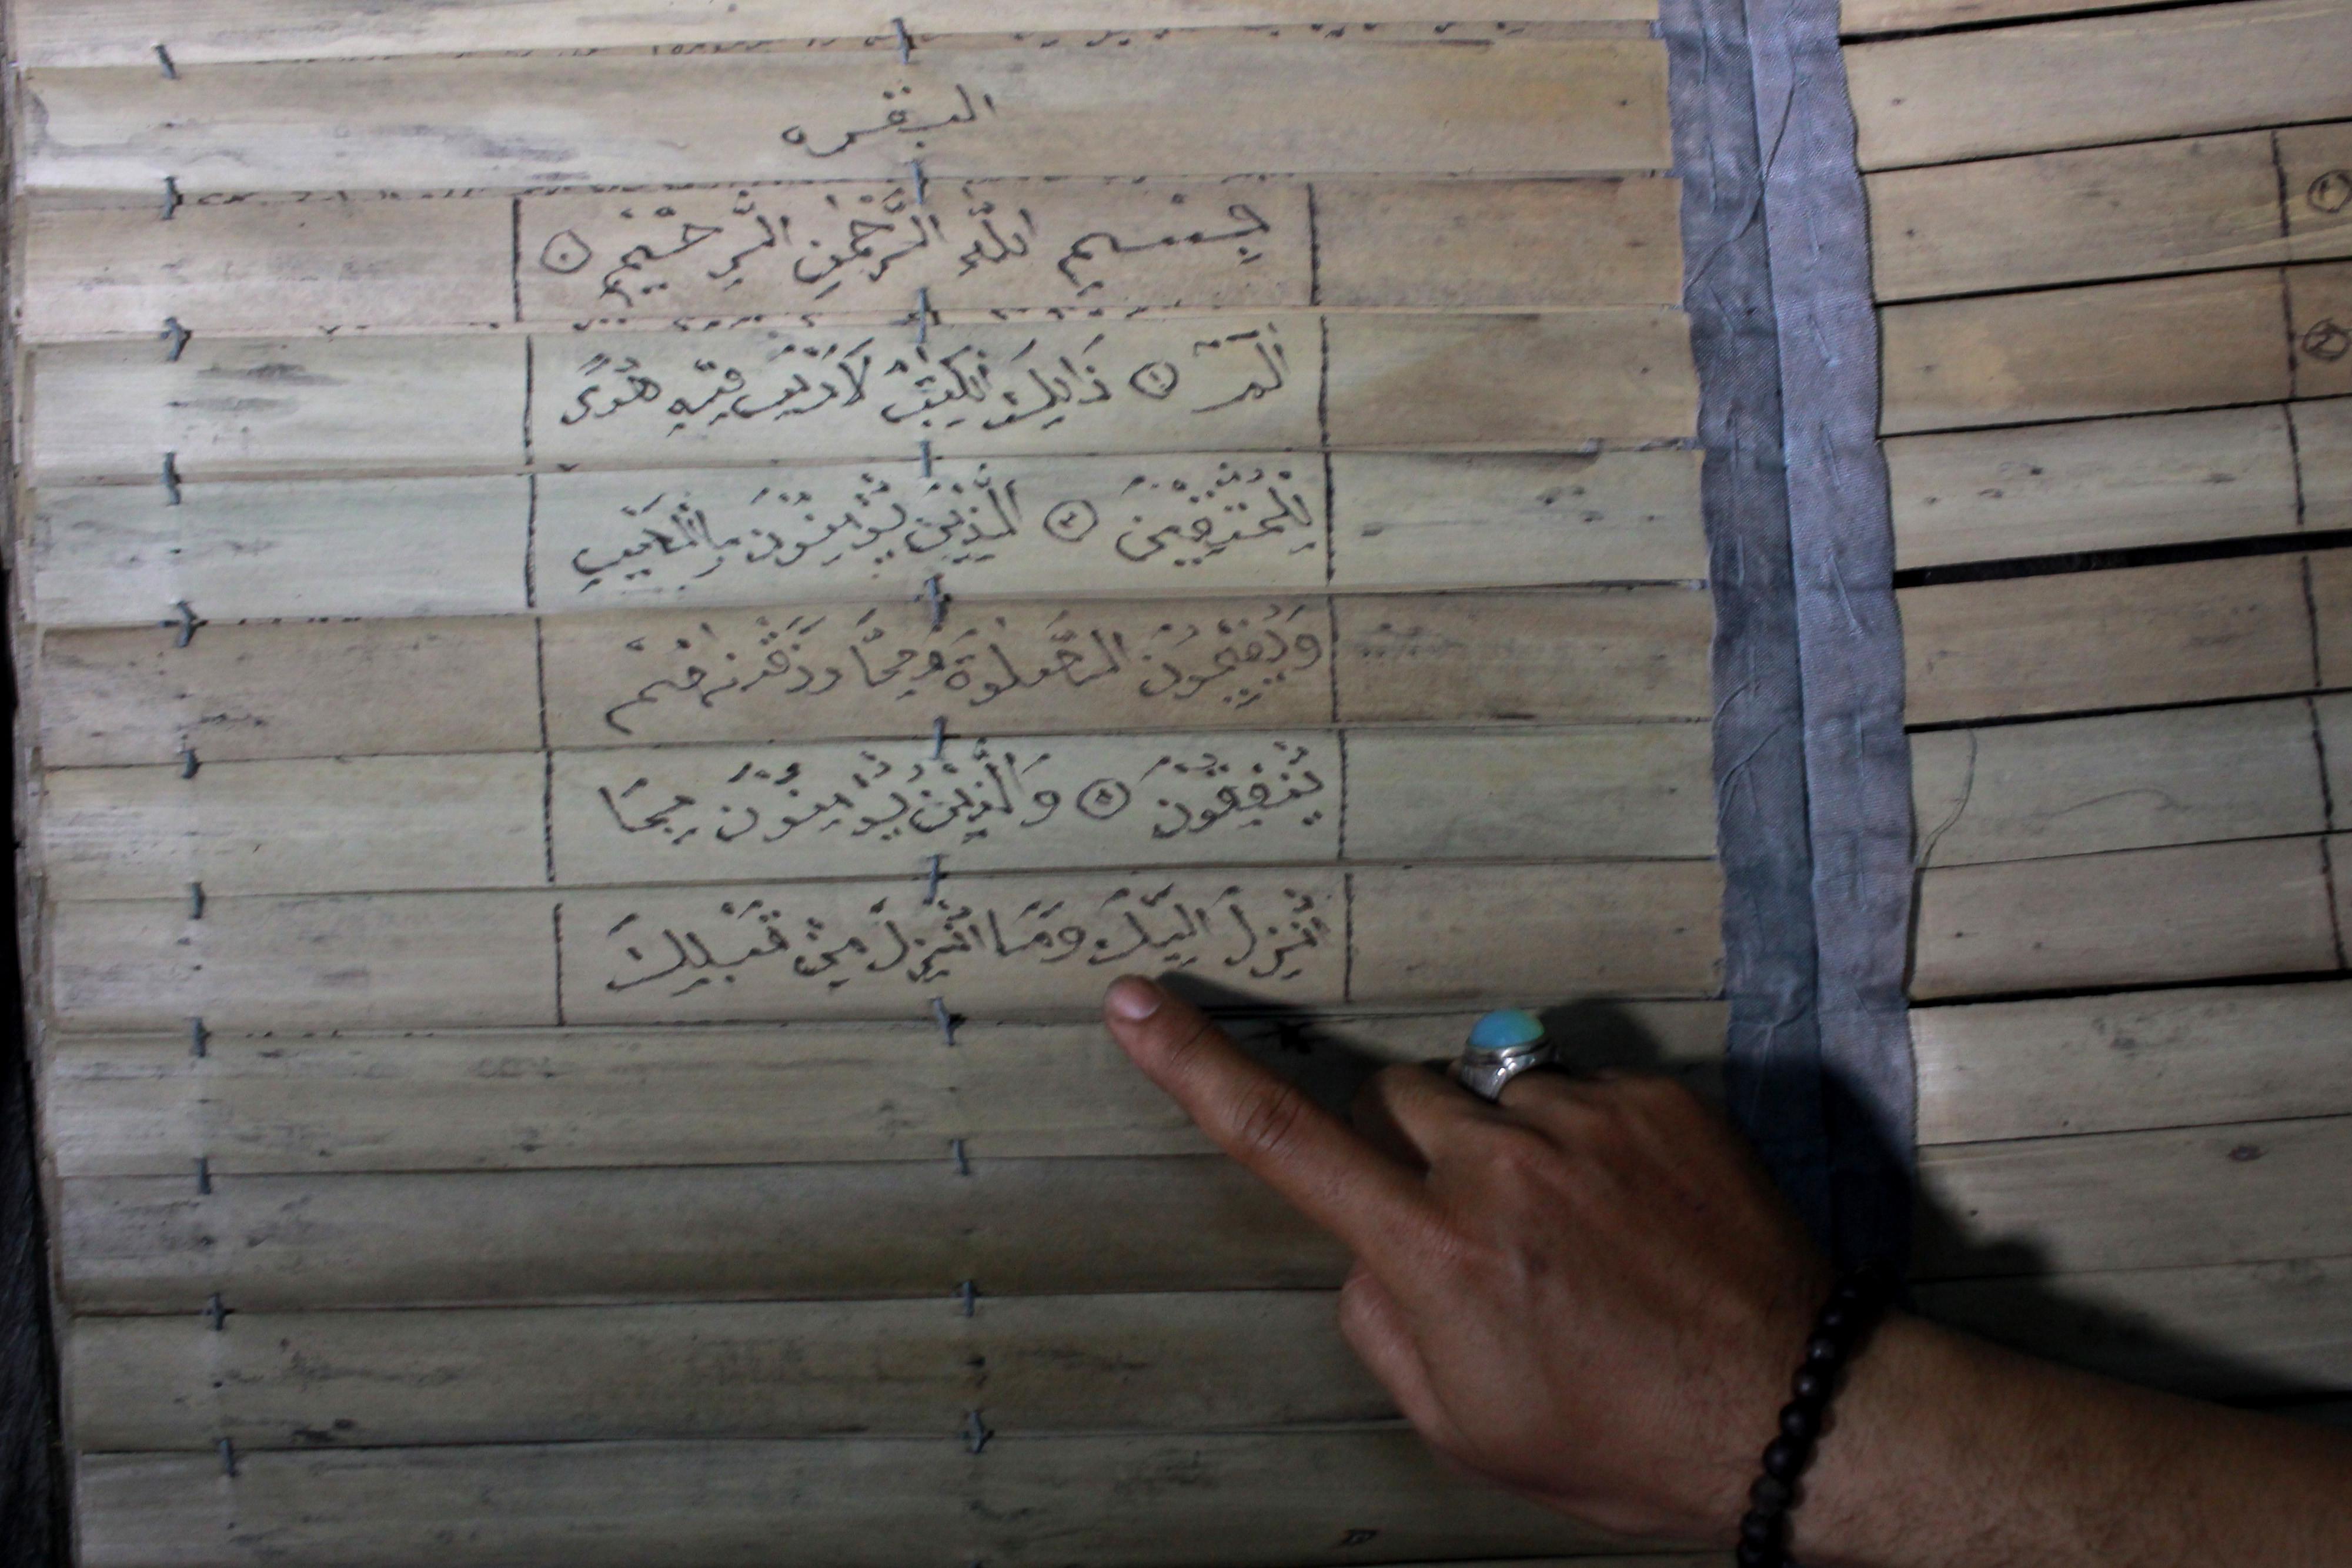 البقره
بِسْمِ اللّٰهِ الرَّحْمٰنِ الرَّحِيْمِ ۝
الٓمّٓ ۝١ ذَالِكَ الْكِتٰبُ لَارَيْبَ فِيْهِ هُدًى
لِلْمُتَّقِيْنَ ۝٢ اَلَّذِيْنَ يُؤْمِنُوْنَ بِالْغَيْبِ
وَيُقِيْمُوْنَ الصَّلٰوةَ وَمِمَّا رَزَقْنٰهُمْ
يُنْفِقُوْنَ ۝ وَالَّذِيْنَ يُؤْمِنُوْنَ بِمَا
اُنْزِلَ اِلَيْكَ وَمَا اُنْزِلَ مِنْ قَبْلِكَ